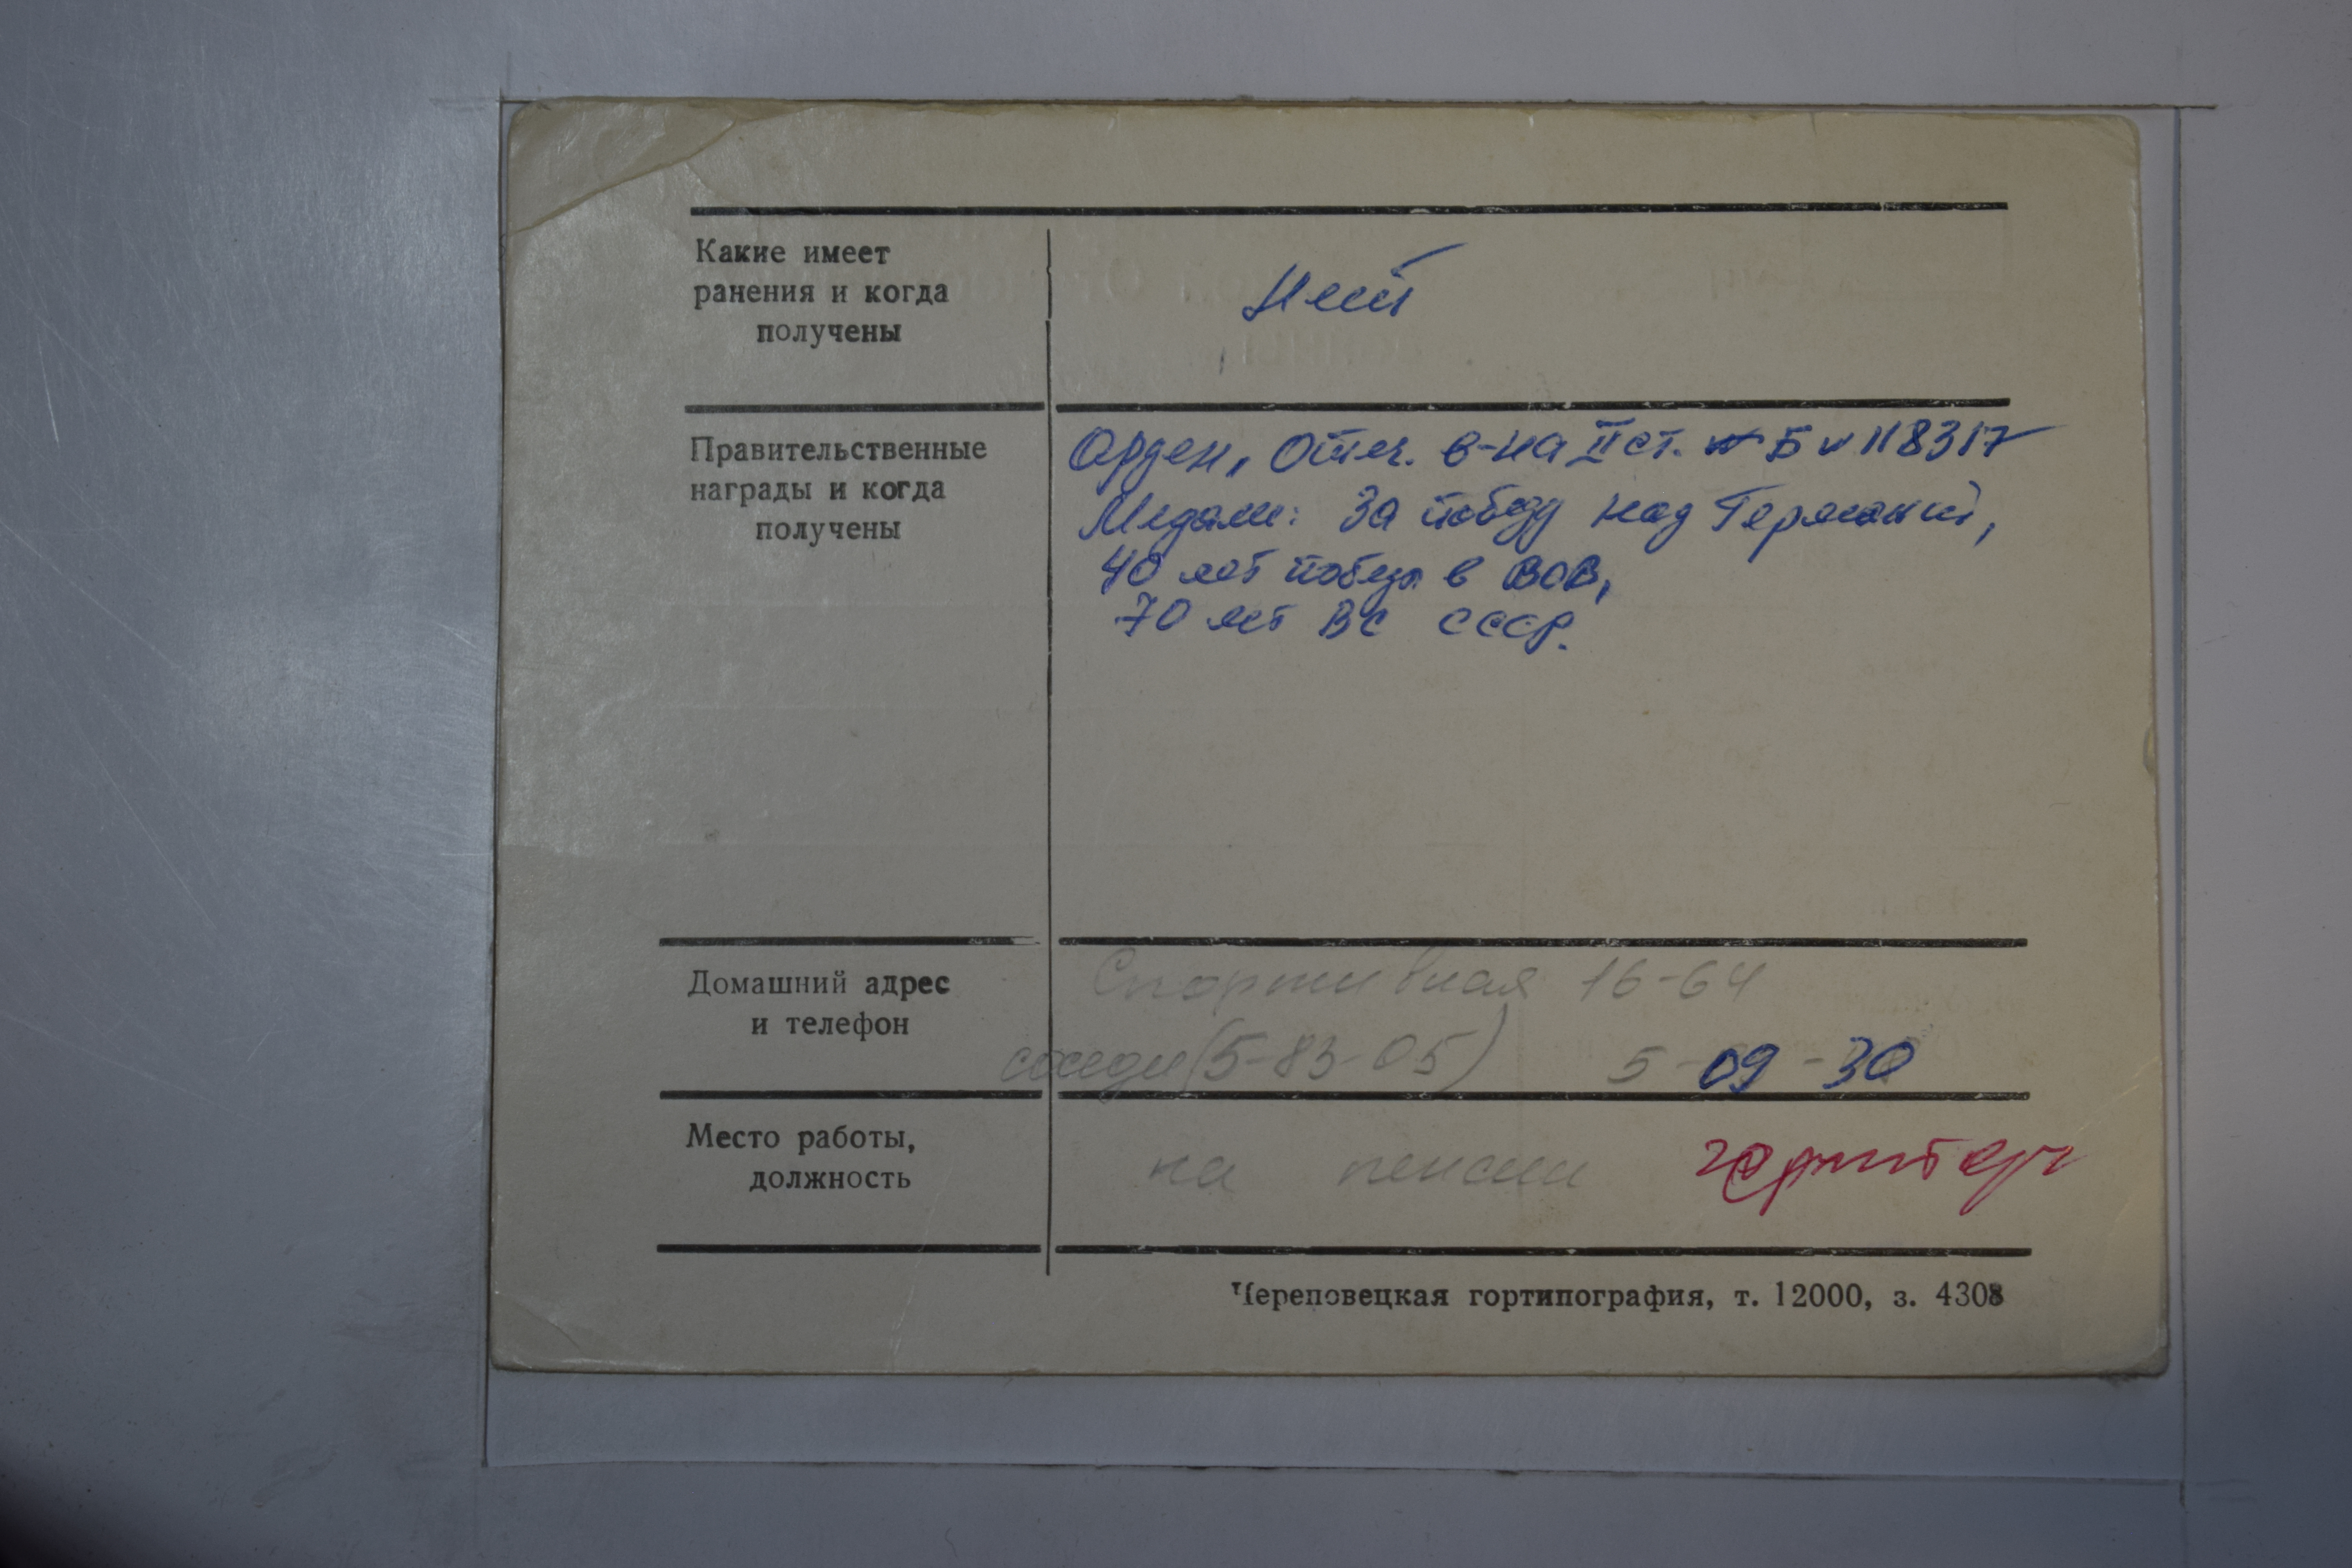 Какие имеет
ранения и когда
получены
нет
Правительственные
награды и когда
получены
Орден, Отеч. в-на II ст. Б 118317
Медали: За победу над Германий,
40 лет победы в ВОВ,
70 лет ВС СССР.
Домашний адрес
и телефон
Спортивная 16-64
соседи (5-83-05) 5-09-30
Место работы,
должность
на пенсии
Череповецкая гортипография, т. 12000, з. 4308